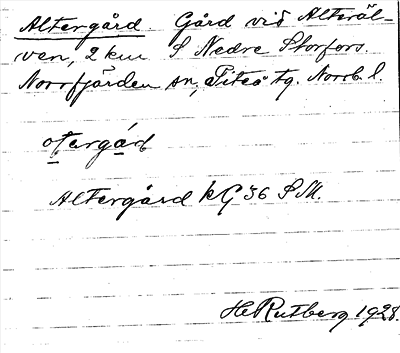 Altergård. Gård vid Alteräl-
ven, 2 km S Nedre Storfors.
Norrfjärden sn, Piteå tg. Norrb. l.
Altergård kG 36 S M.
H Rutberg 1928.